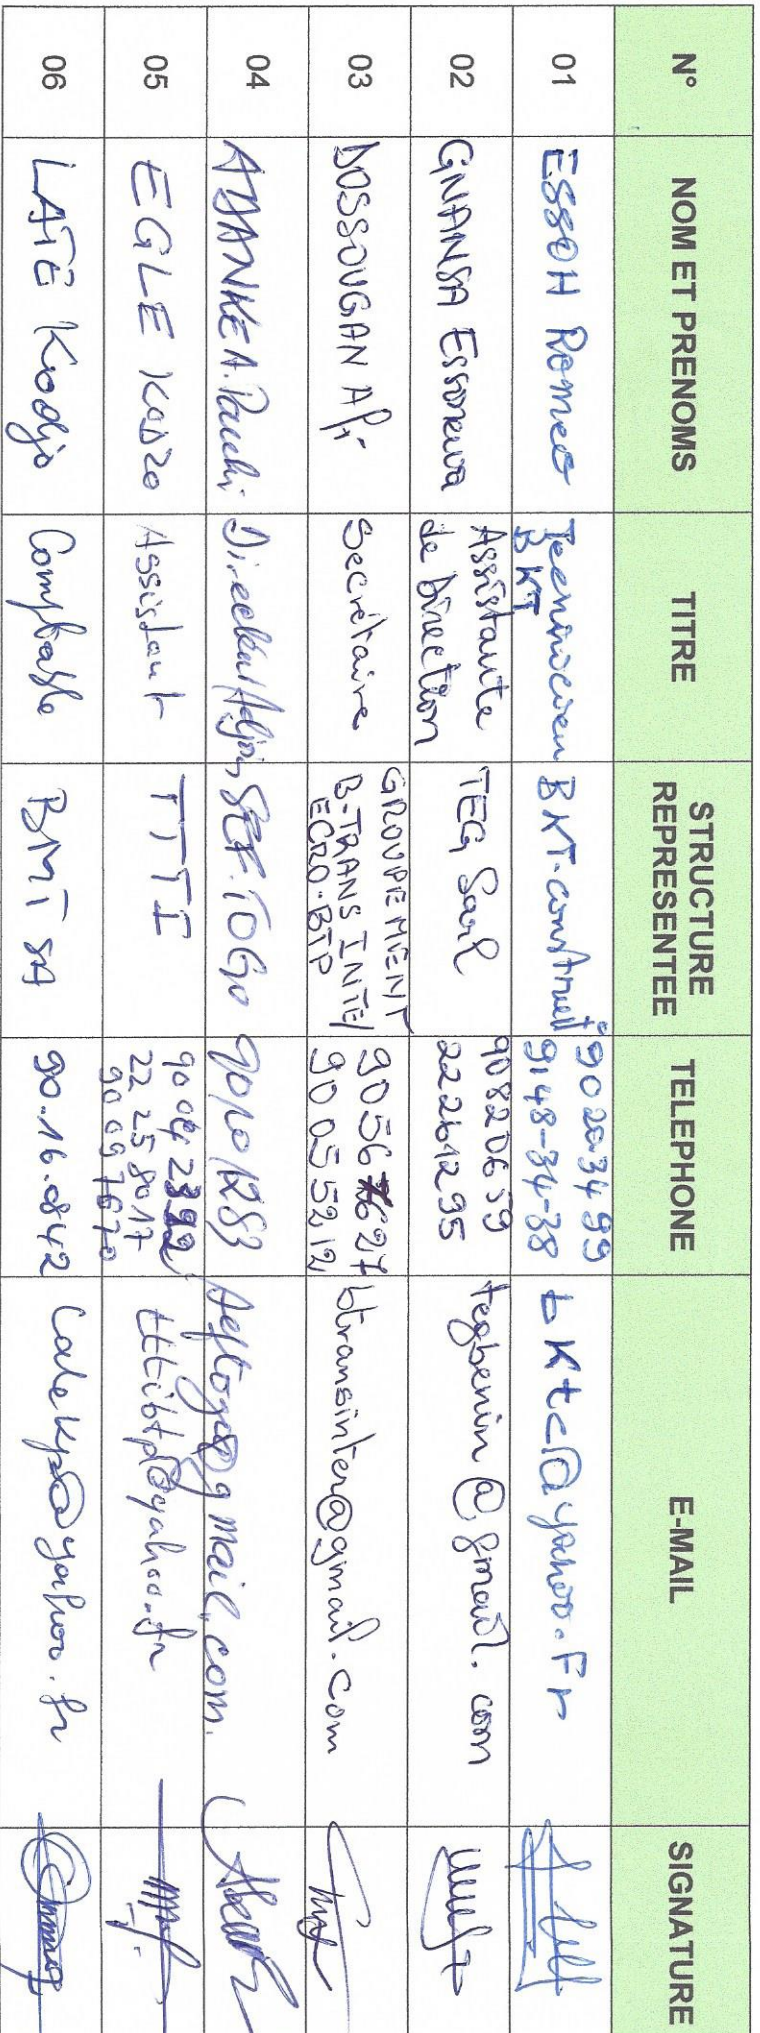 N° NOM ET PRENOMS TITRE STRUCTURE REPRESENTEE TELEPHONE E-MAIL SIGNATURE
01 ESSOH Romeo BKT BKT-construct 90203499
9148-34-38 bktc@yahoo.Fr
02 GNANSA Essonewa Assistante
de Direction TEG Sarl 90820659
22261295 tegbenin@gmail.com
03 DOSSOUGAN Afi Secrétaire GROUPEMENT
B-TRANS INTER/
ECRO-BTP 90055212 btransinter@gmail.com
04 ADANKE A. Directeur Adjoint SEF.TOGO 90101283 seftogo@gmail.com.
05 EGLE Kodzo Assistant TTTI 90042392
22258017
90097670 tttibtp@yahoo.fr
06 LATE Kodjo Comptable BMT SA 90.16.0842 latekp@yahoo.fr